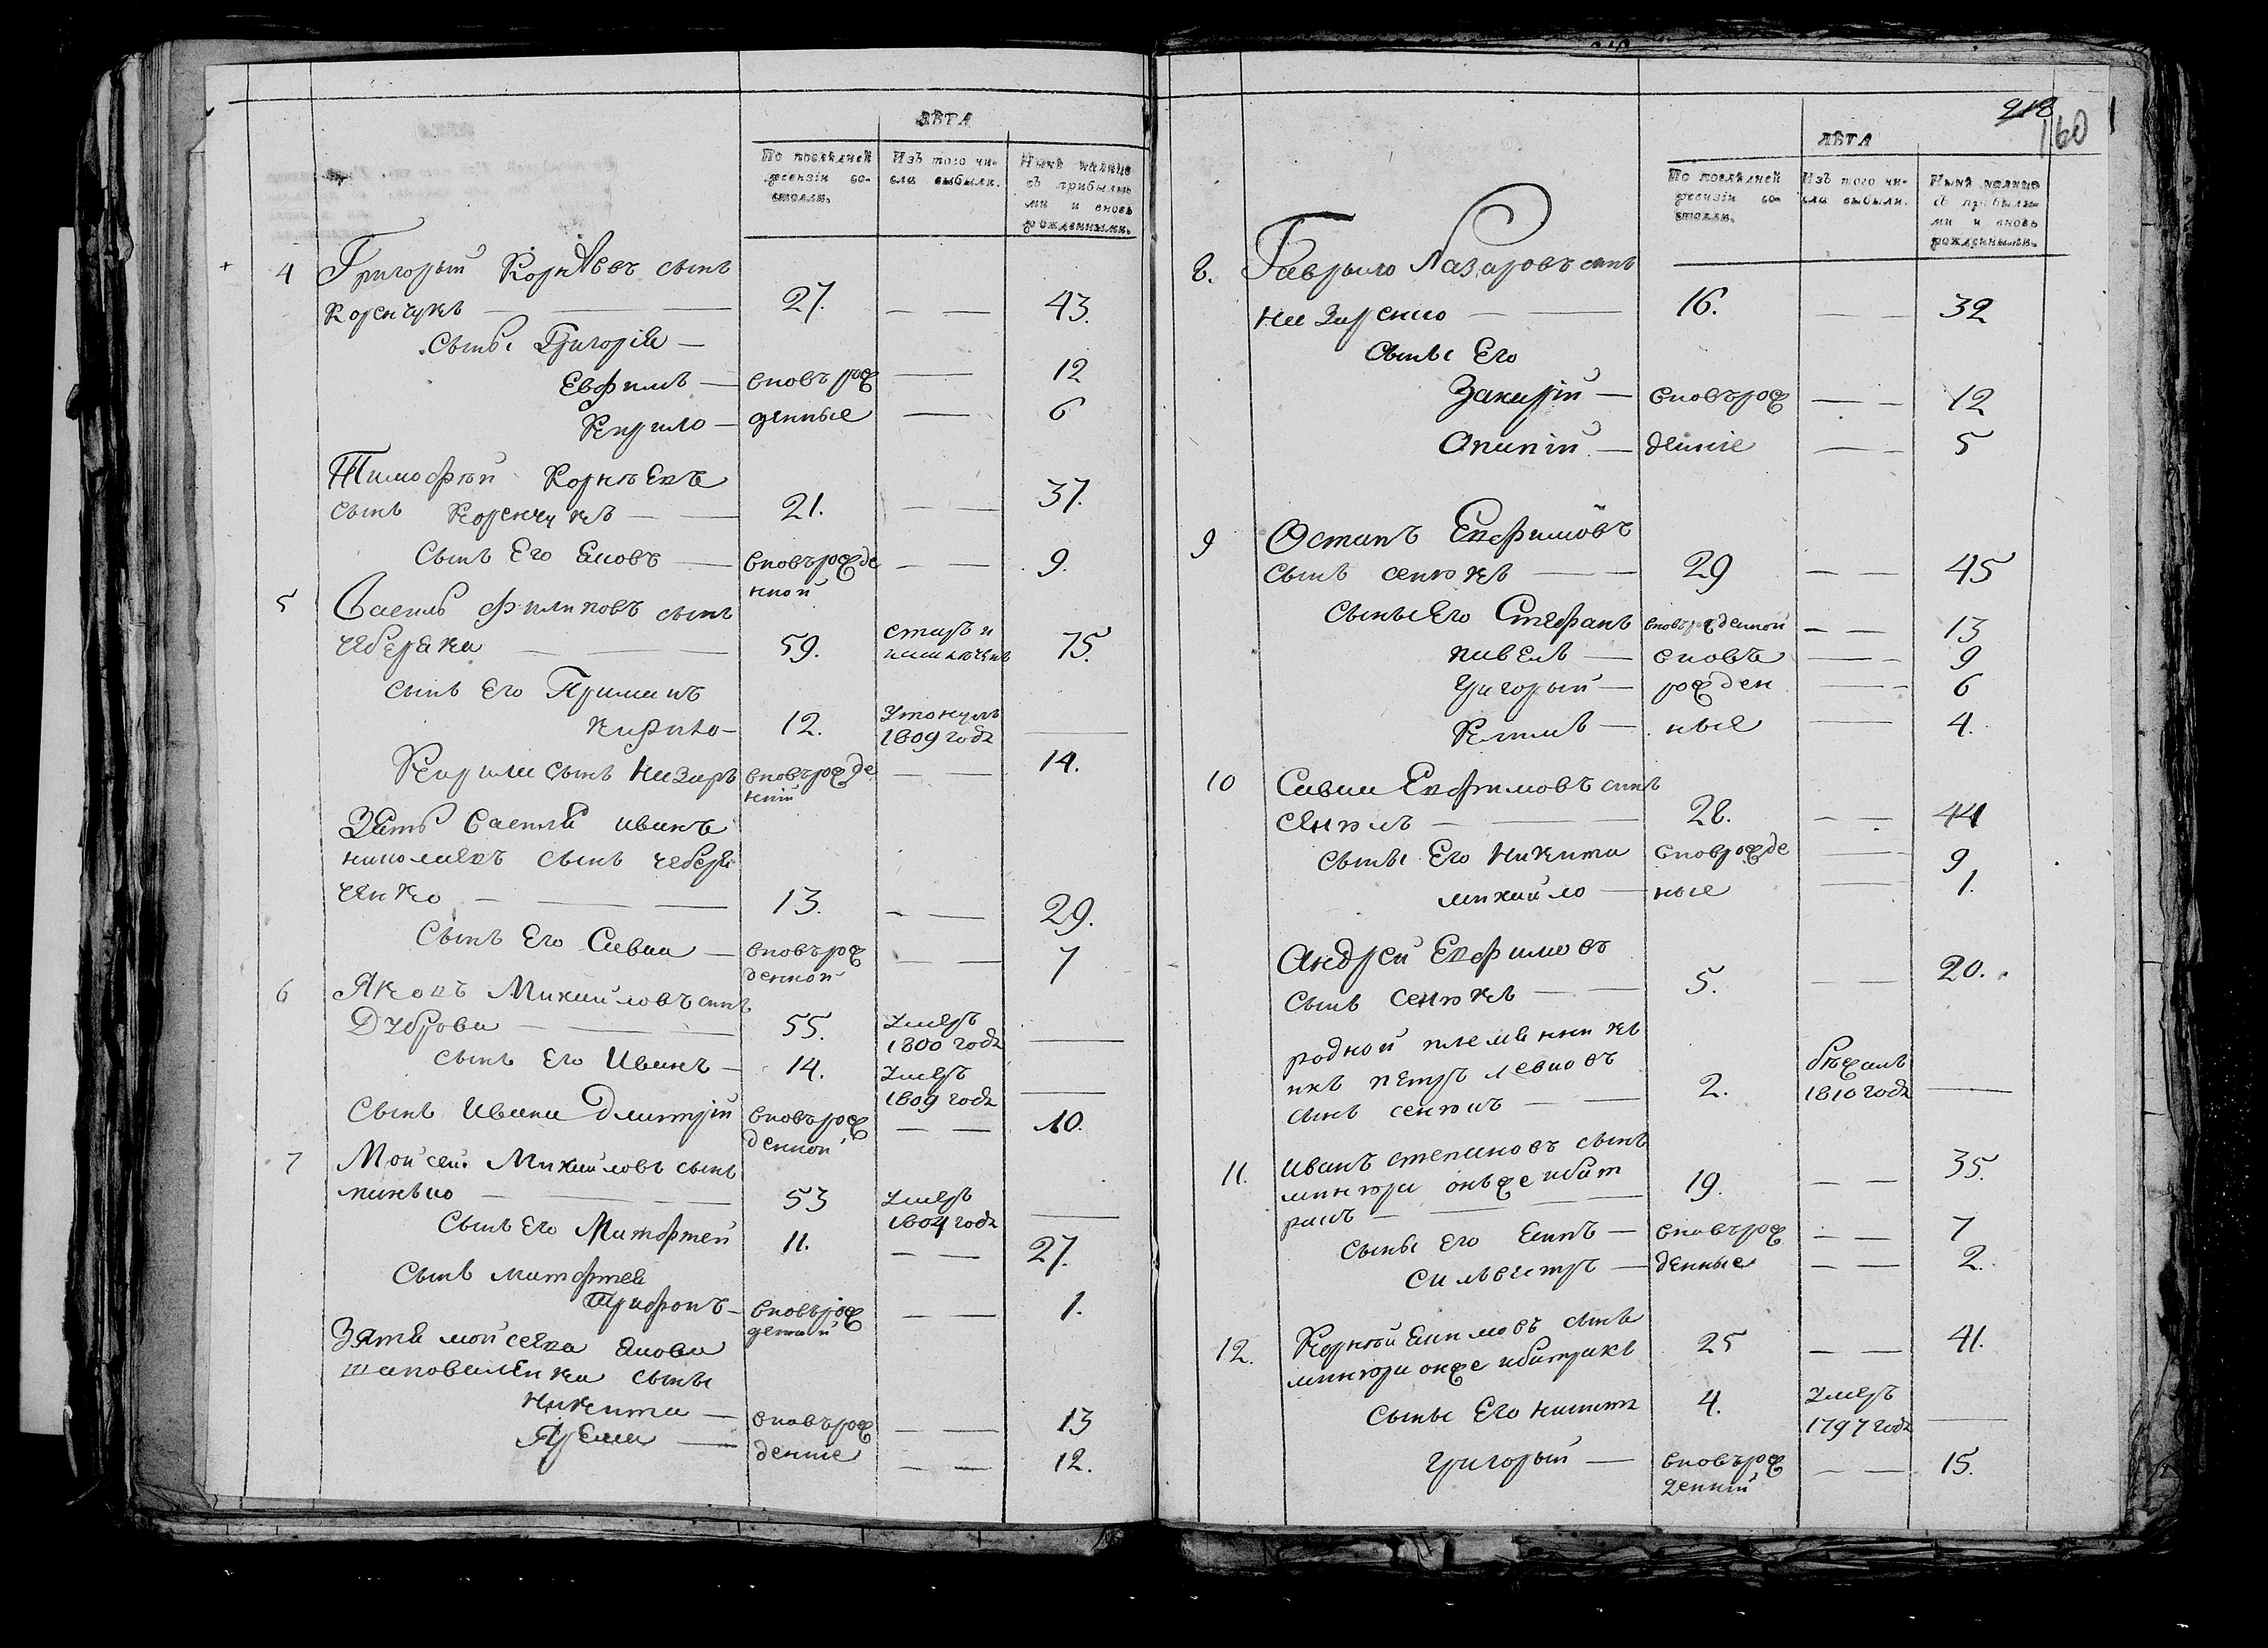 ЛѢТА
По послѣдней ревизіи состояли.
Изъ того числа выбыли.
Нынѣ налицо съ прибылыми и вновь рожденными.
4 Григорый Корнѣевъ сынъ
Коренчукъ — 27. — — 43.
Сыны Григорія —
Евфимъ — вновърож — 12
Кирило — денные — 6
Тимофѣй Корнѣевъ
сынъ Коренчукъ — 21. — — 37.
Сынъ Его Яковъ — вновърожде — — 9.
нной
5 Василь Филиповъ сынъ
чеберака — 59. старъ и 75.
Сынъ Его Прыманъ
Кирило — 12. Утонулъ
1809 года —
Кирили сынъ Назаръ вновърожде — — 14.
ній
Зять Василія иванъ
николаевъ сынъ чебера
ченко — 13. — — 29.
Сынъ Его Савва — вновърож — — 7
денной
6 Яковъ Михайловъ сынъ
Дуброва — 55. Умеръ
1800 года —
сынъ Его Иванъ — 14. Умеръ
1809 года —
Сынъ Ивана Дмитрій вновърож — — 10.
денной
7 Мойсей Михайловъ сынъ
панько — 53 Умеръ
1804 года —
Сынъ Его Матфтей 11. — — 27.
Сынъ матфтея
Трифонъ — вновърож — — 1.
денный
Зятя мойсеева Якова
шаповаленка сыны
Никита — вновърож — — 13
Ярема — денние — — 12.
218
160
ЛѢТА
По послѣдней ревизіи состояли.
Изъ того числа выбыли.
Нынѣ налицо съ прибылыми и вновь рожденными.
8. Гаврыло Лазаровъ синъ
Назаренко — 16. — — 32
Сыны Его
Захарій — вновърож — — 12
Онипій — денніе — — 5
9 Остапъ Евфимовъ
Сынъ сенюкъ — 29 — — 45
Сыны Его Стефанъ вноврожденной — — 13
павелъ — вновъ — — 9
Григорый — рожден — — 6
Климъ — ные — 4.
10 Савва Евфимовъ синъ
Сенюкъ — 28. — — 44
Сыны Его Никита вноврожде — 9
михайло — ные — 1.
Андрей Евфимовъ
Сынъ сенюкъ — 5. — — 20.
родной племянникъ
ихъ петръ левковъ
сынъ сенюкъ — 2. бѣжалъ
1810 года —
11. Иванъ степановъ сынъ
мантора онъже ибат
ракъ — 19. — — 35.
Сыны Его — вновърож — — 7
Сильвестръ — денные — — 2.
12. Корнѣй Якимовъ сынъ
мантора онже ибатракъ 25 — — 41.
Сыны Его никита 4. Умеръ
1797 года —
Григорый — вновърож — — 15.
денній